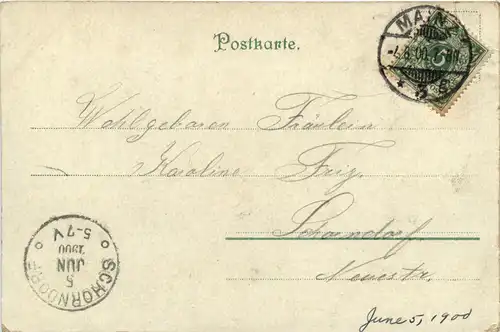 Postkarte.
MAINZ
Wohlgeboren Fräulein
Karoline Friz.
Schorndorf
Neuestr.
SCHORNDORF
5
JUN
1900
5-7 V
June 5, 1900